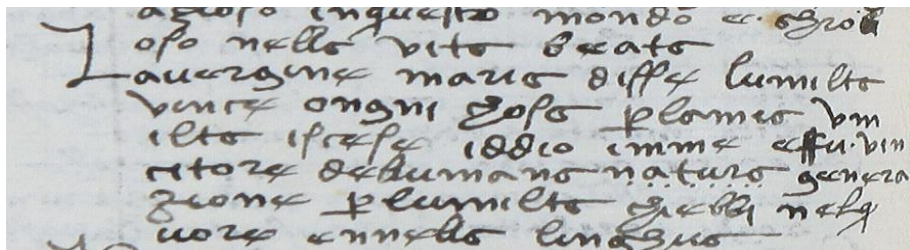 in questo mondo e
oso nella vita beata
Lavergine maria disse lumilta
vince ongni chosa plamia vm
ilta iscese iddio imme effu vin
citore delumana natura genera
zione plumilta chiebbi nelq
uore ennella linghua